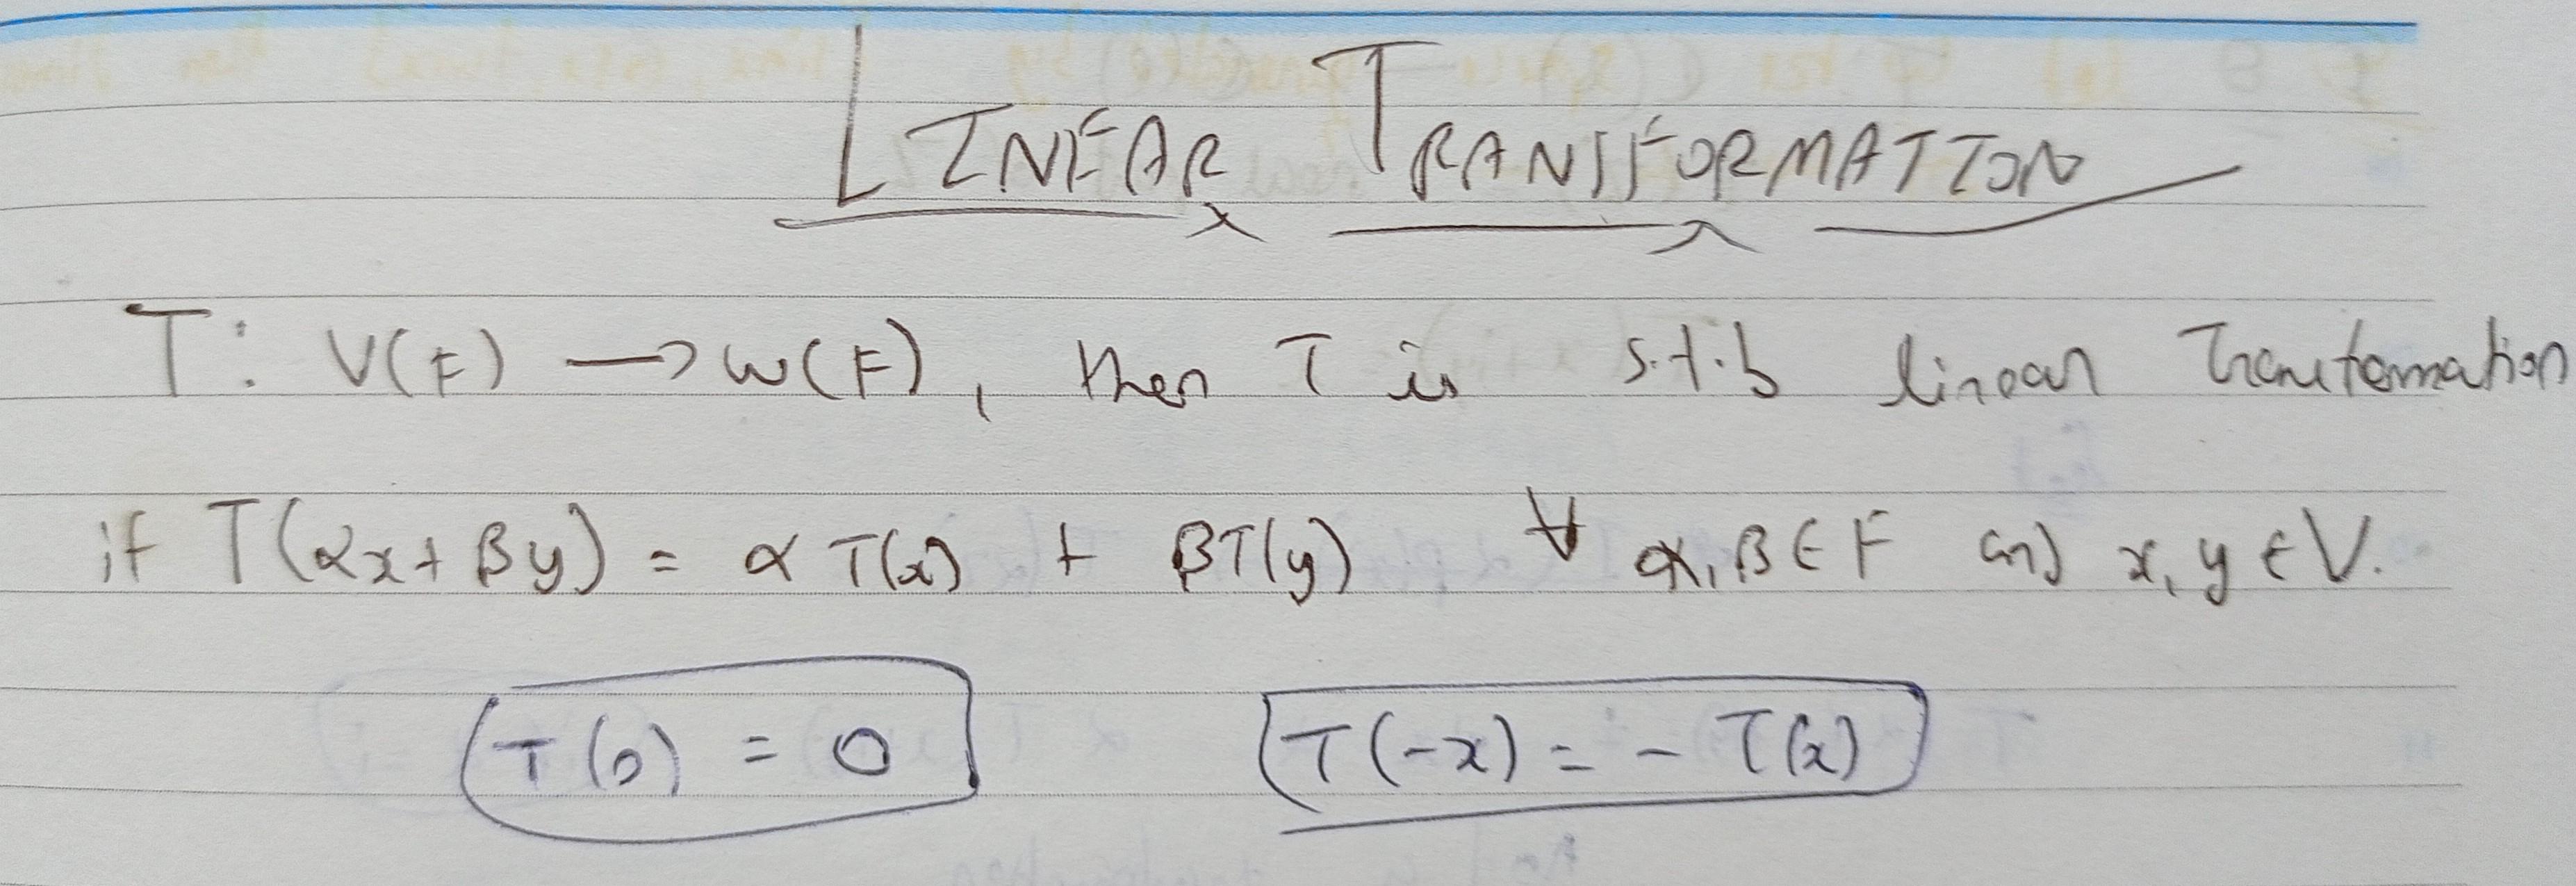 LINEAR TRANSFORMATION
T: V(F) → W(F), then T is s.t.b linear Transformation
if T(αx + βy) = α T(x) + βT(y) ∀ α, β ∈ F and x, y ∈ V.
T(0) = 0 T(-x) = - T(x)